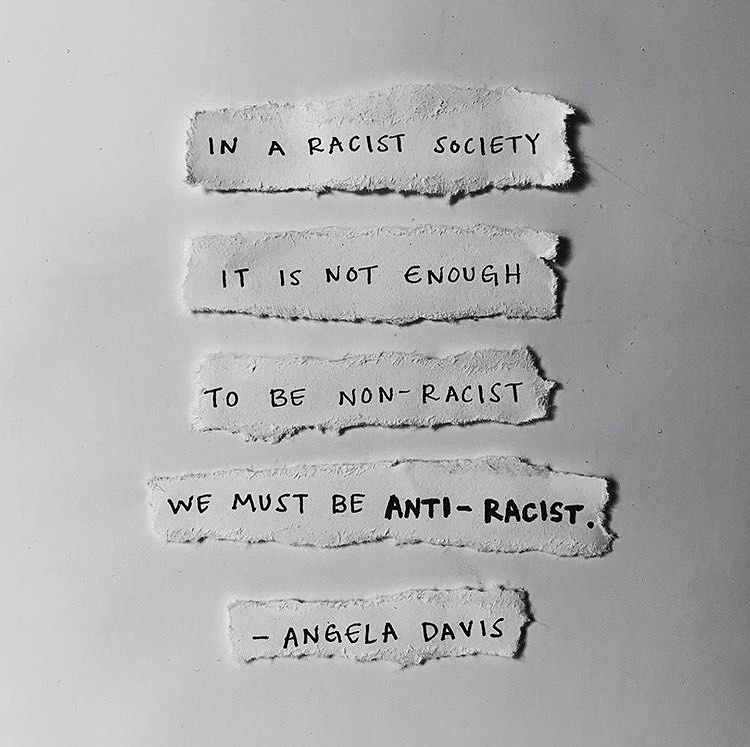 IN A RACIST SOCIETY
IT IS NOT ENOUGH
TO BE NON-RACIST
WE MUST BE ANTI-RACIST.
- ANGELA DAVIS